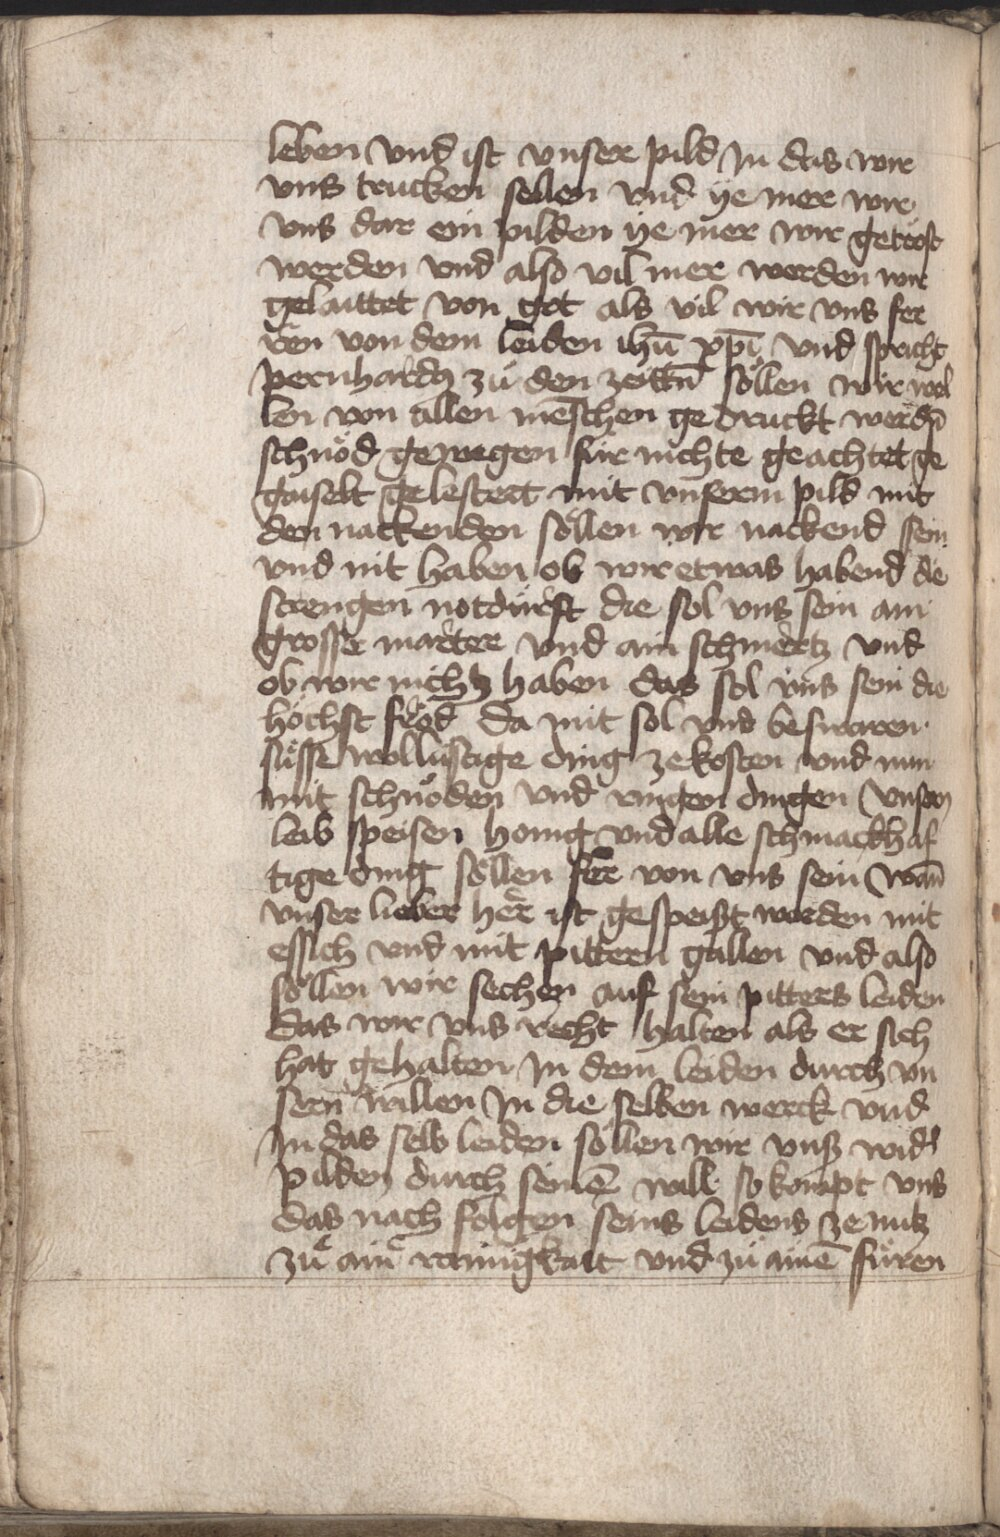 leben vnd ist vnser pild In das wir
vns trucken sellen vnd ye mer wir
vns dar ein pilden ye mer wir getröst
werden vnd also vil mer werden wir
gelaittet von got als vil wir vns fer
ren von dem leiden ihū xpī vnd spricht
pernhardꝫ zů den zeittn̄ söllen wir wel
len von allen mēschen ge druckt werdn̄
schnöd gewegen für nichte geachtet ge
gaiselt gelestert mit vnserm pild mit
den nackenden söllen wir nackend sein
vnd nit haben ob wir etwas habend die
strengen notdürft die sol vns sein ain
grosse marter vnd ain schmertz vnd
ob wir nichtz haben das sol vns sein die
höchst fröd da mit sol vnd beswaren
süsse wollustige ding ze kosten vnd nun
mit schnöden vnd ringen dingen vnsern
leib speisen honig vnd alle schmackhaf
tige ding söllen fer von vns sein wān
vnser lieber her ist gespeißt worden mit
essich vnd mit pittern gallen vnd also
söllen wir sechen auf sein pitters leiden
das wir vns recht halten als er sich
hat gehalten In dem leiden durch vn
sern willen In die selben werck vnd
In das selb leiden söllen wir vnß wid'
pilden durch seinē will so kompt vns
das nach folgen seins leidens ze nutz
zů ain' rainigkait vnd zů ainē füren